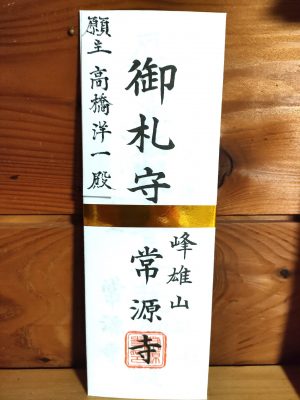 御札守
峰雄山
常源寺
願主 高橋洋一殿